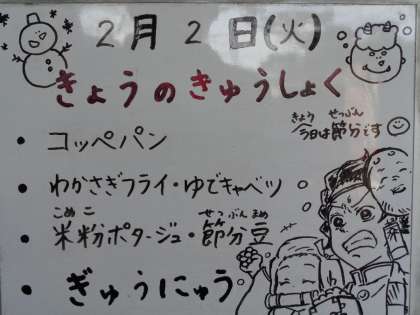 2月2日(火)
きょうのきゅうしょく
きょう せつぶん
今日は節分です
• コッペパン
• わかさぎフライ・ゆでキャベツ
こめこ せつぶんまめ
• 米粉ポタージュ・節分豆
• ぎゅうにゅう